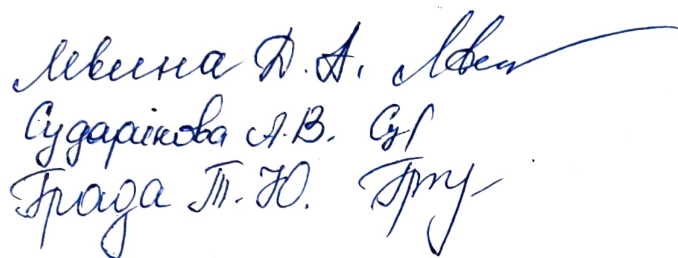 Левина Д.А.
Сударікова А.В.
Града Т.Ю.